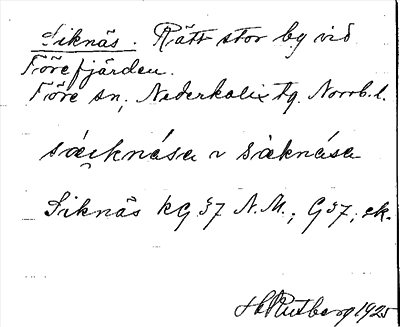 Siknäs. Rätt stor by vid
Törefjärden.
Töre sn, Nederkalix tg. Norrb. l.
sáiknása ~ sàknása
Siknäs kG 37 N.M.; G 37; ek.
H Rutberg 1925